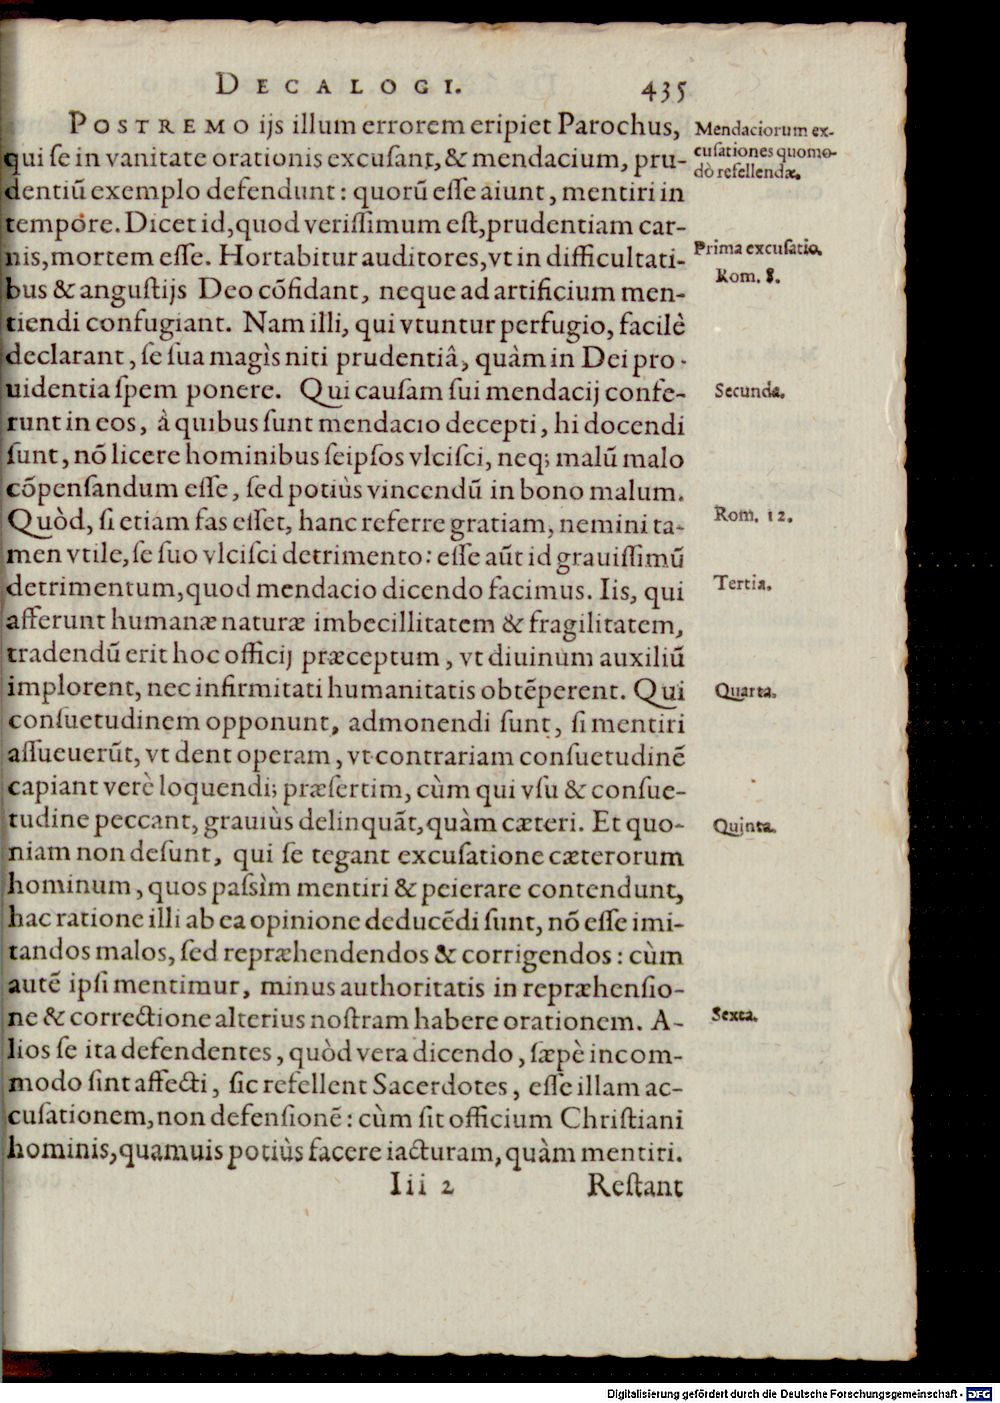 DECALOGI. 435
POSTREMO ijs illum errorem eripiet Parochus,
qui ſe in vanitate orationis excuſant, & mendacium, pru-
dentiũ exemplo defendunt: quorũ eſſe aiunt, mentiri in
tempore. Dicet id, quod veriſſimum eſt, prudentiam car-
nis, mortem eſſe. Hortabitur auditores, vt in difficultati-
bus & anguſtijs Deo cõfidant, neque ad artificium men-
tiendi confugiant. Nam illi, qui vtuntur perfugio, facilè
declarant, ſe ſua magìs niti prudentiâ, quàm in Dei pro-
uidentia ſpem ponere. Qui cauſam ſui mendacij confe-
runt in eos, à quibus ſunt mendacio decepti, hi docendi
ſunt, nõ licere hominibus ſeipſos vlciſci, neq; malũ malo
cõpenſandum eſſe, ſed potiùs vincendũ in bono malum.
Quòd, ſi etiam fas eſſet, hanc referre gratiam, nemini ta-
men vtile, ſe ſuo vlciſci detrimento: eſſe aũt id grauiſſimũ
detrimentum, quod mendacio dicendo facimus. Iis, qui
afferunt humanæ naturæ imbecillitatem & fragilitatem,
tradendũ erit hoc officij præceptum, vt diuinum auxiliũ
implorent, nec infirmitati humanitatis obtẽperent. Qui
conſuetudinem opponunt, admonendi ſunt, ſi mentiri
aſſueuerũt, vt dent operam, vt contrariam conſuetudinẽ
capiant verè loquendi; præſertim, cùm qui vſu & conſue-
tudine peccant, grauiùs delinquãt, quàm cæteri. Et quo-
niam non deſunt, qui ſe tegant excuſatione cæterorum
hominum, quos paſsìm mentiri & peierare contendunt,
hac ratione illi ab ea opinione deducẽdi ſunt, nõ eſſe imi-
tandos malos, ſed repræhendendos & corrigendos: cùm
autẽ ipſi mentimur, minus authoritatis in repræhenſio-
ne & correctione alterius noſtram habere orationem. A-
lios ſe ita defendentes, quòd vera dicendo, ſæpè incom-
modo ſint affecti, ſic refellent Sacerdotes, eſſe illam ac-
cuſationem, non defenſionẽ: cùm ſit officium Chriſtiani
hominis, quamuis potiùs facere iacturam, quàm mentiri.
Iii 2 Reſtant
Mendaciorum ex-
cuſationes quomo-
dò refellendæ.
Prima excuſatio.
Rom. 8.
Secunda.
Rom. 12.
Tertia.
Quarta.
Quinta.
Sexta.
Digitalisierung gefördert durch die Deutsche Forschungsgemeinschaft - DFG